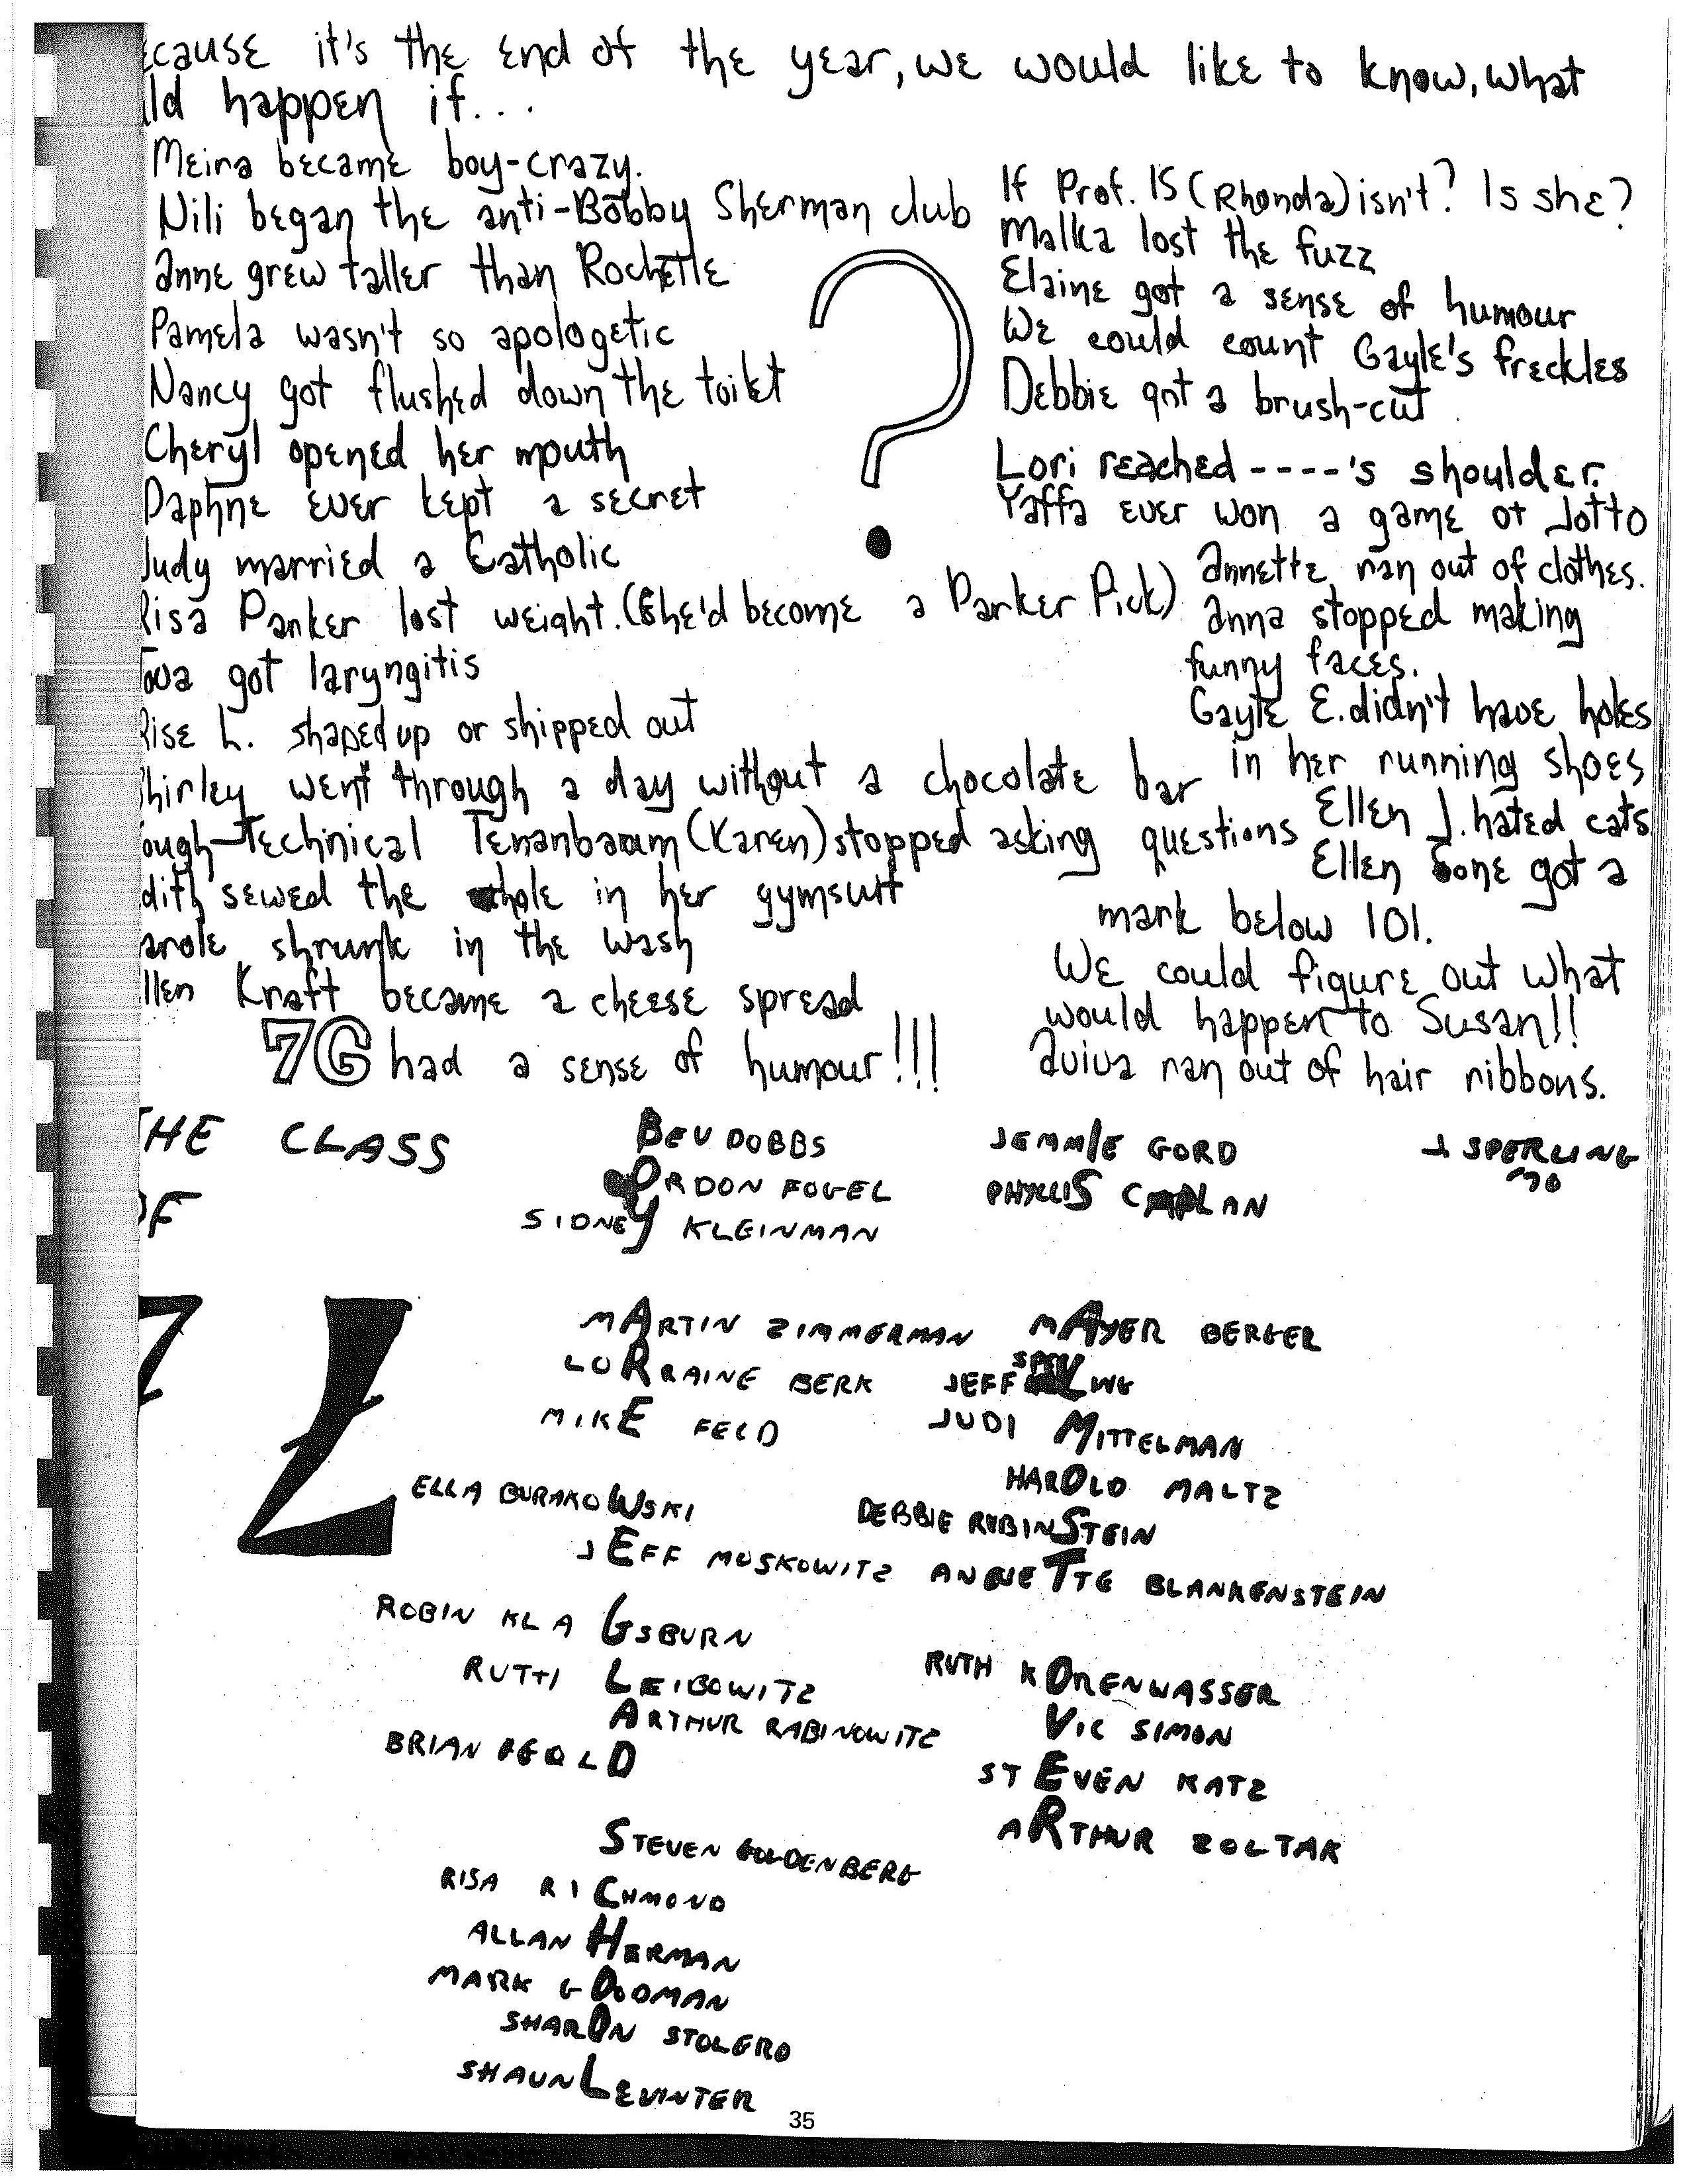 ecause it's the end of the year, we would like to know, what
ld happen if...
Meira became boy-crazy.
Nili began the anti-Bobby Sherman club
Anne grew taller than Rochelle
Pamela wasn't so apologetic
Nancy got flushed down the toilet
Cheryl opened her mouth
Daphne ever kept a secret
Judy married a Catholic
Risa Parker lost weight. (She'd become a Parker Pick)
Tova got laryngitis
Rise L. shaped up or shipped out
hirley went through a day without a chocolate bar
ough-Technical Tenanbaum (Karen) stopped asking questions
dith sewed the hole in her gymsuit
arole shrunk in the wash
llen Kraft became a cheese spread
7G had a sense of humour!!!
?
If Prof. IS (Rhonda) isn't? Is she?
Malka lost the fuzz
Elaine got a sense of humour
We could count Gayle's freckles
Debbie got a brush-cut
Lori reached ----'s shoulder.
Yaffa ever won a game of Jotto
Annette ran out of clothes.
Anna stopped making
funny faces.
Gayle E. didn't have holes
in her running shoes
Ellen J. hated cats
Ellen Sone got a
mark below 101.
We could figure out what
would happen to Susan!!
Aviva ran out of hair ribbons.
THE CLASS
OF
7L
BEV DOBBS
ORDON FOGEL
SIDNEY KLEINMAN
JEMMIE GORD
PHYLLIS CAPLAN
J SPERLING
70
MARTIN ZIMMERMAN
LORRAINE BERK
MIKE FELD
ELLA BURAKOWSKI
JEFF MOSKOWITZ
MAYER BERGER
JEFF SPERLING
JUDI MITTELMAN
HAROLD MALTZ
DEBBIE RUBINSTEIN
ANNETTE BLANKENSTEIN
ROBIN KLAGSBURN
RUTH LEIBOWITZ
ARTHUR RABINOWITZ
BRIAN
RUTH KORENWASSER
VIC SIMON
STEVEN KATZ
ARTHUR ZOLTAK
STEVEN GOLDENBERG
RISA RICHMOND
ALLAN HERMAN
MARK GOODMAN
SHARON STOLERO
SHAUN LEVINTER
35